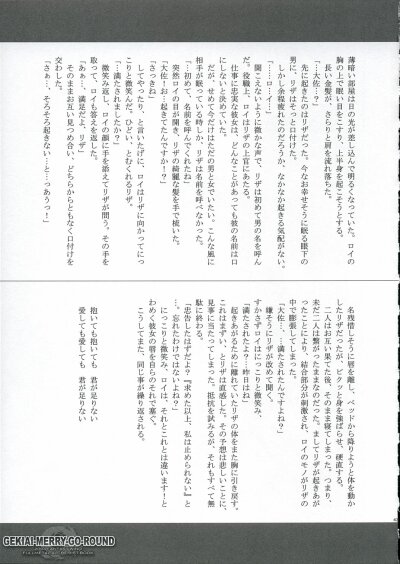 薄暗い部屋は日の光が差し込んで明るくなっていた。ロイの
胸の上で眠い目をこすり、上半身を起こそうとする。
長い金髪が、さらりと肩を流れ落ちた。
「…大佐…？」
先に起きたのはリザだった。今なお幸せそうに眠る眼下の
男に、リザはそっと口付けた。
しかし余程疲れたのだろうか、なかなか起きる気配がない。
「…ロ…イ」
聞こえないように微かな声で、リザは初めて男の名を呼ん
だ。役職上、ロイはリザの上官にあたる。
仕事に忠実な彼女は、どんなことがあっても彼の名前は口
にしないと決めていた。
だが、せめて今だけはただの男と女でいたい。こんな風に
相手が眠っている時しか、リザは名前を呼べなかった。
「…初めて、名前を呼んでくれたね」
突然ロイの目が開き、リザの綺麗な髪を手で梳いた。
「大佐！お…起きてたんですか！？」
「さっきね」
してやったり、と言いたげに、ロイはリザに向かってにっ
こりと微笑んだ。ひどい、とむくれるリザ。
「…満たされましたか？」
微笑み返し、ロイの顔に手を添えてリザが問う。その手を
取って、ロイも答えを返した。
「あぁ…、満足だよ、リザ」
そのままお互い見つめ合い、どちらからともなく口付けを
交わした。
「さぁ…、そろそろ起きない…と…つあうっ！」
名残惜しそうに唇を離し、ベッドから降りようと体を動か
したリザだったが、ビクッと身を強ばらせ、硬直する。
二人はお互い果てた後、そのまま寝てしまった。つまり、
未だ二人は繋がったままなのだった。ましてリザが起きあが
ったことにより、結合部分が刺激され、ロイのモノがリザの
中で膨張してしまった。
「大佐…、…満たされたんですよね？」
嫌そうにリザが改めて聞く。
すかさずロイはにっこりと微笑み、
「満たされたよ？…昨日はね」
起きあがるために離れていたリザの体をまた胸に引き戻す。
これはまずい、とリザは直感した。その予想は悲しいことに
見事に当たってしまった。抵抗を試みるが、それもすべて無
駄に終わる。
「忠告したはずだよ？『求めた以上、私は止められない』と
…。忘れたわけではないよね？」
にっこりと微笑み、ロイは、それとこれとは違います！と
わめく彼女の唇を自らのそれで塞ぐ。
こうしてまた、同じ事が繰り返される。
抱いても抱いても　君が足りない
愛しても愛しても　君が足りない
GEKIAI-MERRY-GO-ROUND